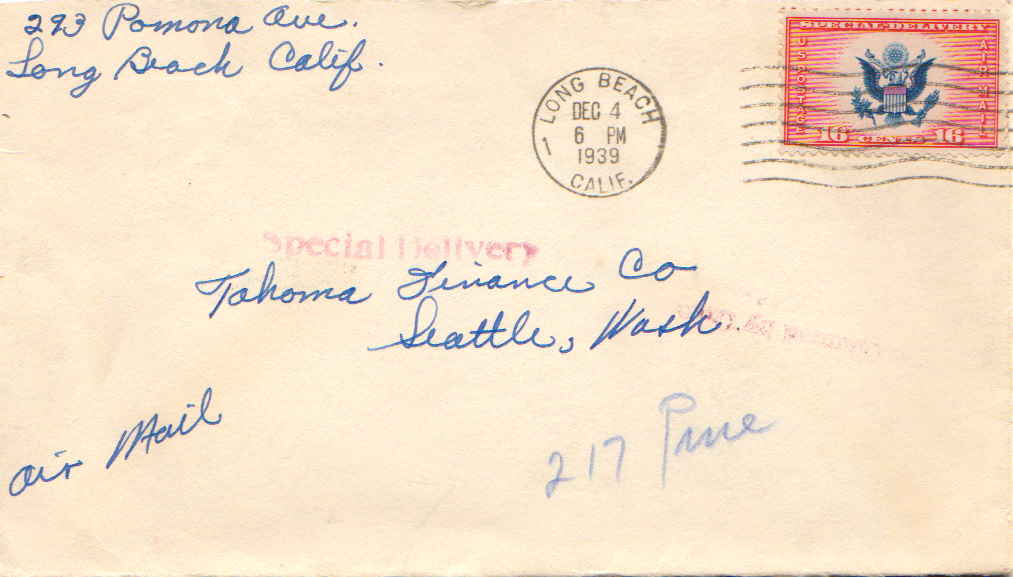 293 Pomona Ave.
Long Beach Calif.
LONG BEACH
DEC 4
6 PM
1939
CALIF.
1
SPECIAL DELIVERY
US POSTAGE
AIR MAIL
16 CENTS 16
Special Delivery
Tahoma Finance Co
Seattle, Wash
Air Mail
217 Pine